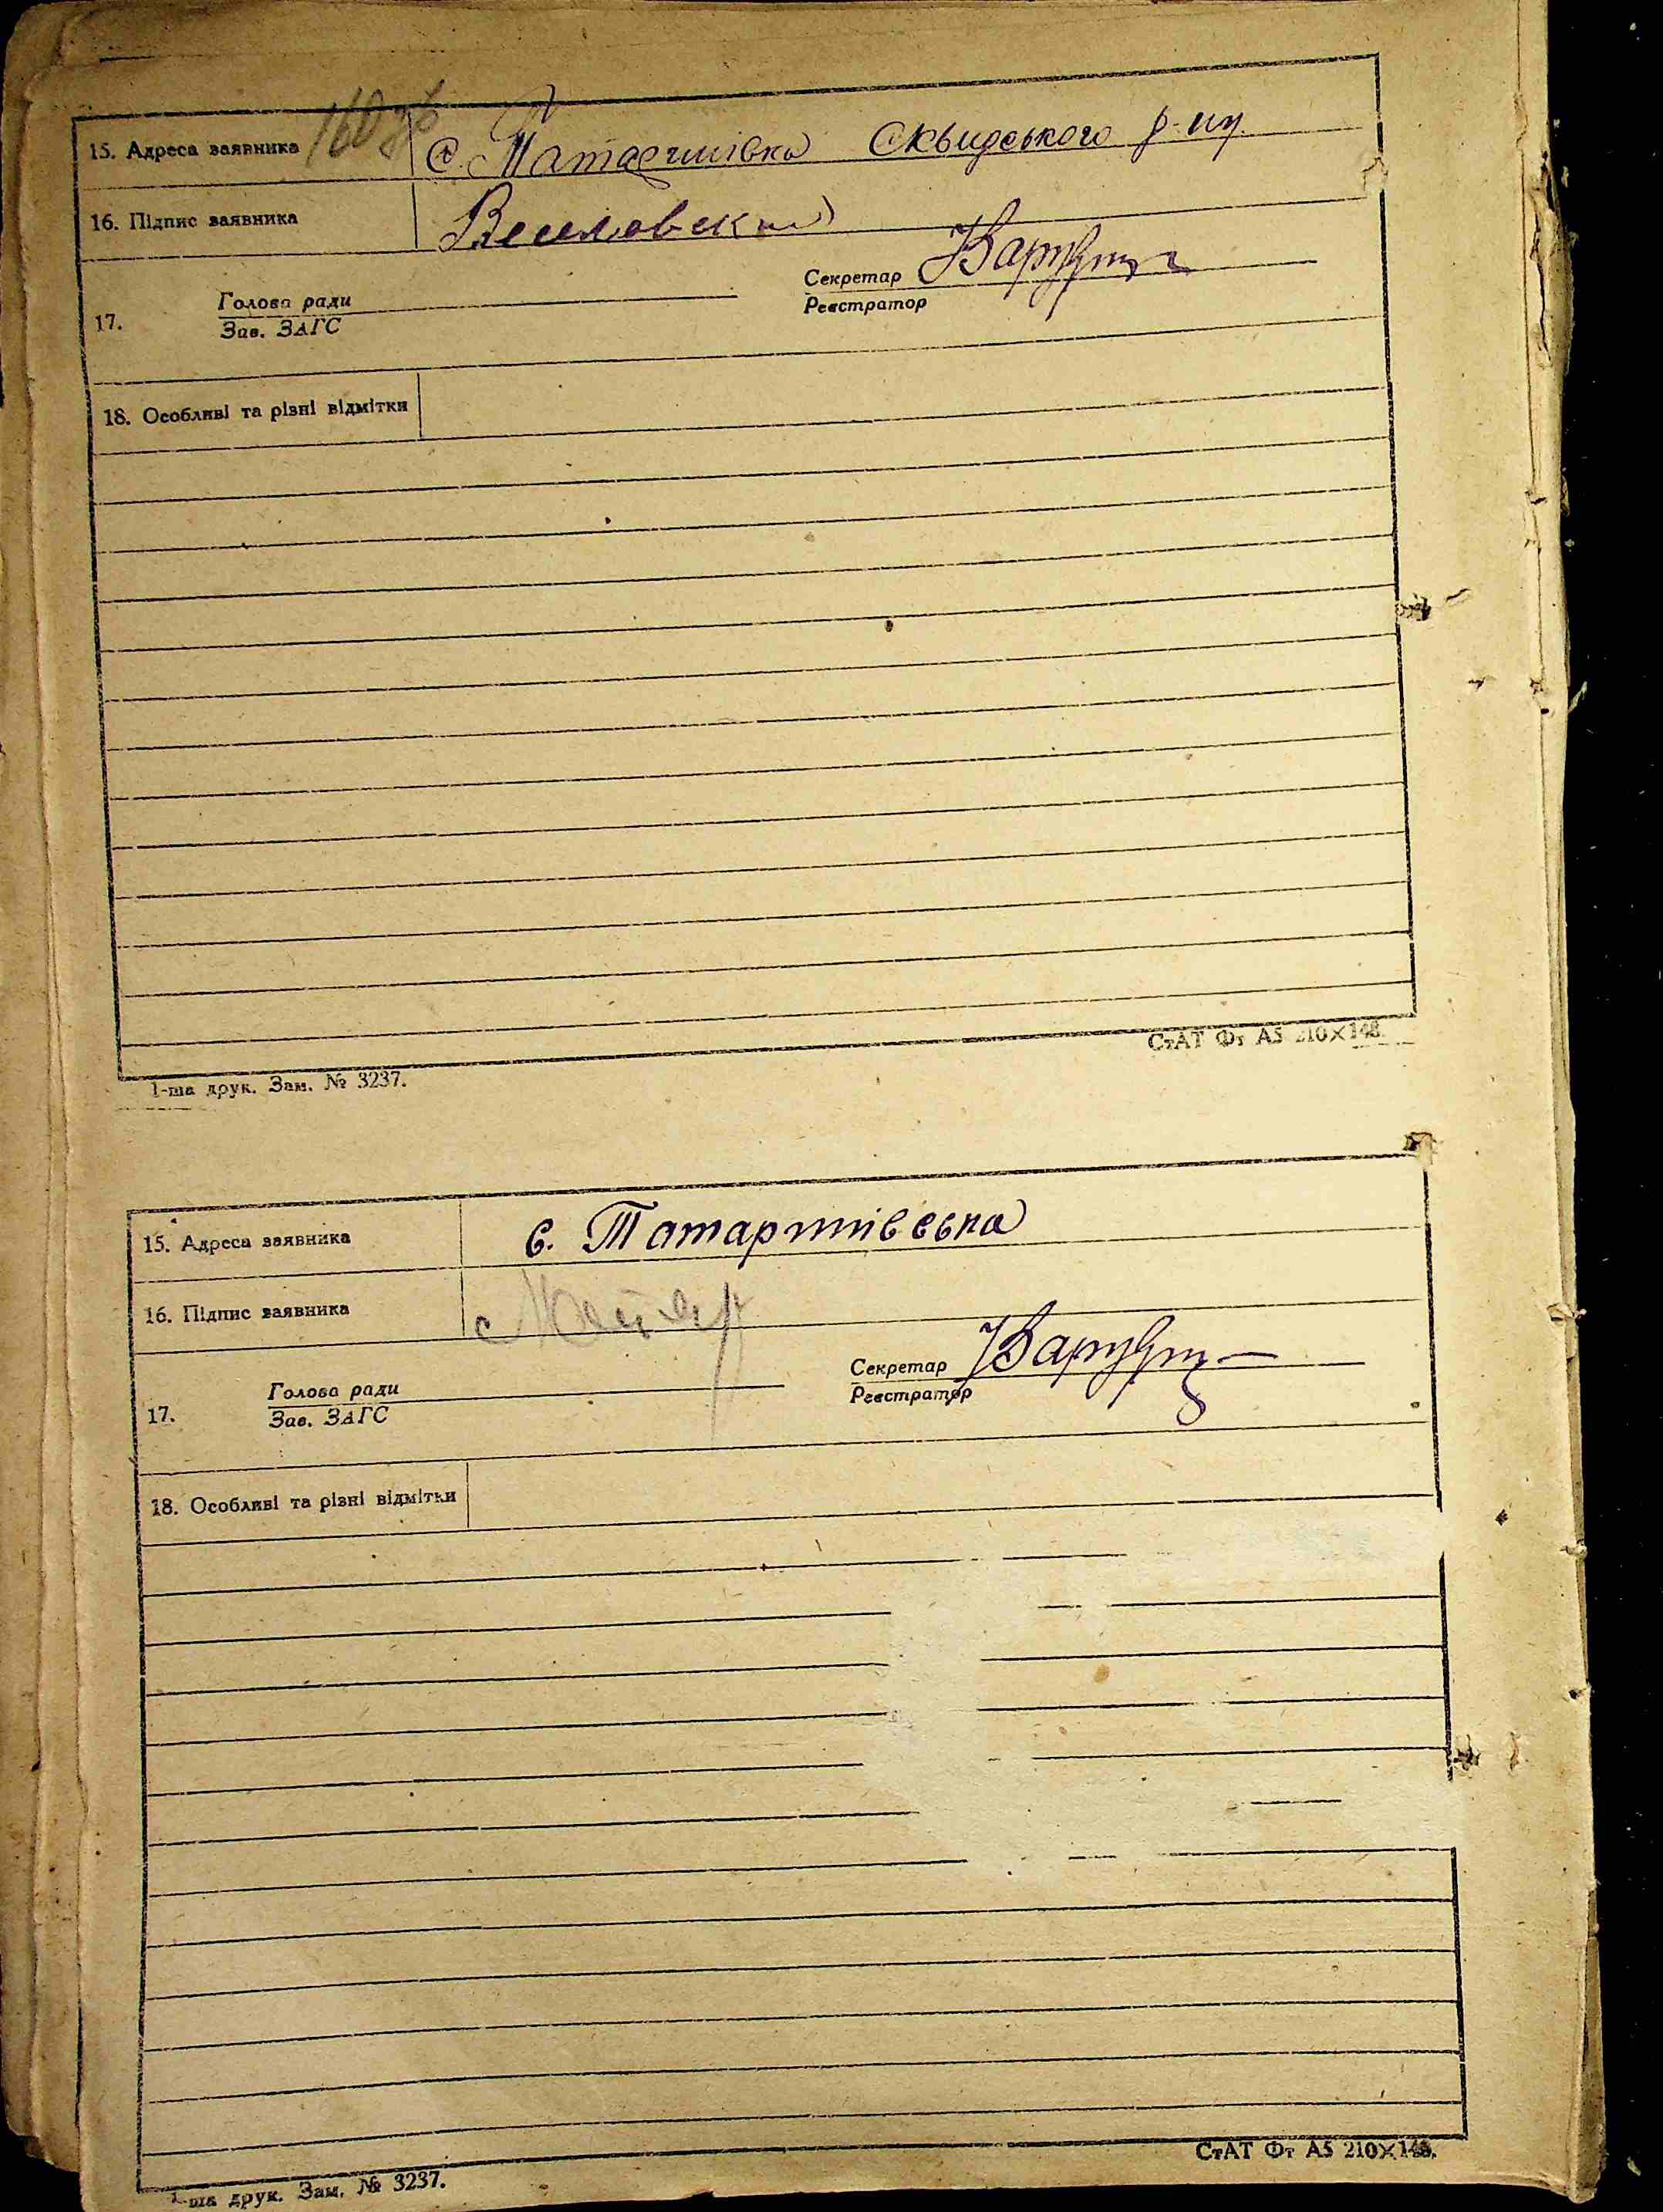 160 зв
15. Адреса заявника с. Татаринівка Сквирського р-ну.
16. Підпис заявника Веселовский
Секретар
Голова ради Реєстратор
17. Зав. ЗАГС
18. Особливі та різні відмітки
СтАТ Фт А5 210×148.
1-ша друк. Зам. № 3237.
15. Адреса заявника с.
16. Підпис заявника
Секретар
Голова ради Реєстратор
17. Зав. ЗАГС
18. Особливі та різні відмітки
СтАТ Фт А5 210×148.
1-ша друк. Зам. № 3237.